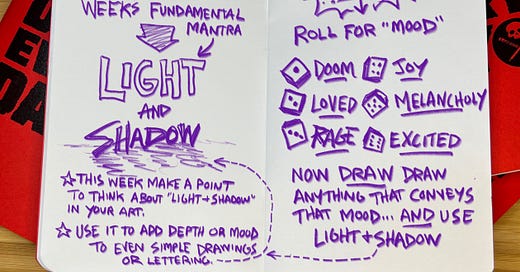 WEEKS FUNDAMENTAL
MANTRA
LIGHT
AND
SHADOW
☆ THIS WEEK MAKE A POINT
TO THINK ABOUT "LIGHT+SHADOW"
IN YOUR ART.
☆ USE IT TO ADD DEPTH OR MOOD
TO EVEN SIMPLE DRAWINGS
OR LETTERING.
ROLL FOR "MOOD"
DOOM JOY
LOVED MELANCHOLY
RAGE EXCITED
NOW DRAW DRAW
ANYTHING THAT CONVEYS
THAT MOOD... AND USE
LIGHT+SHADOW